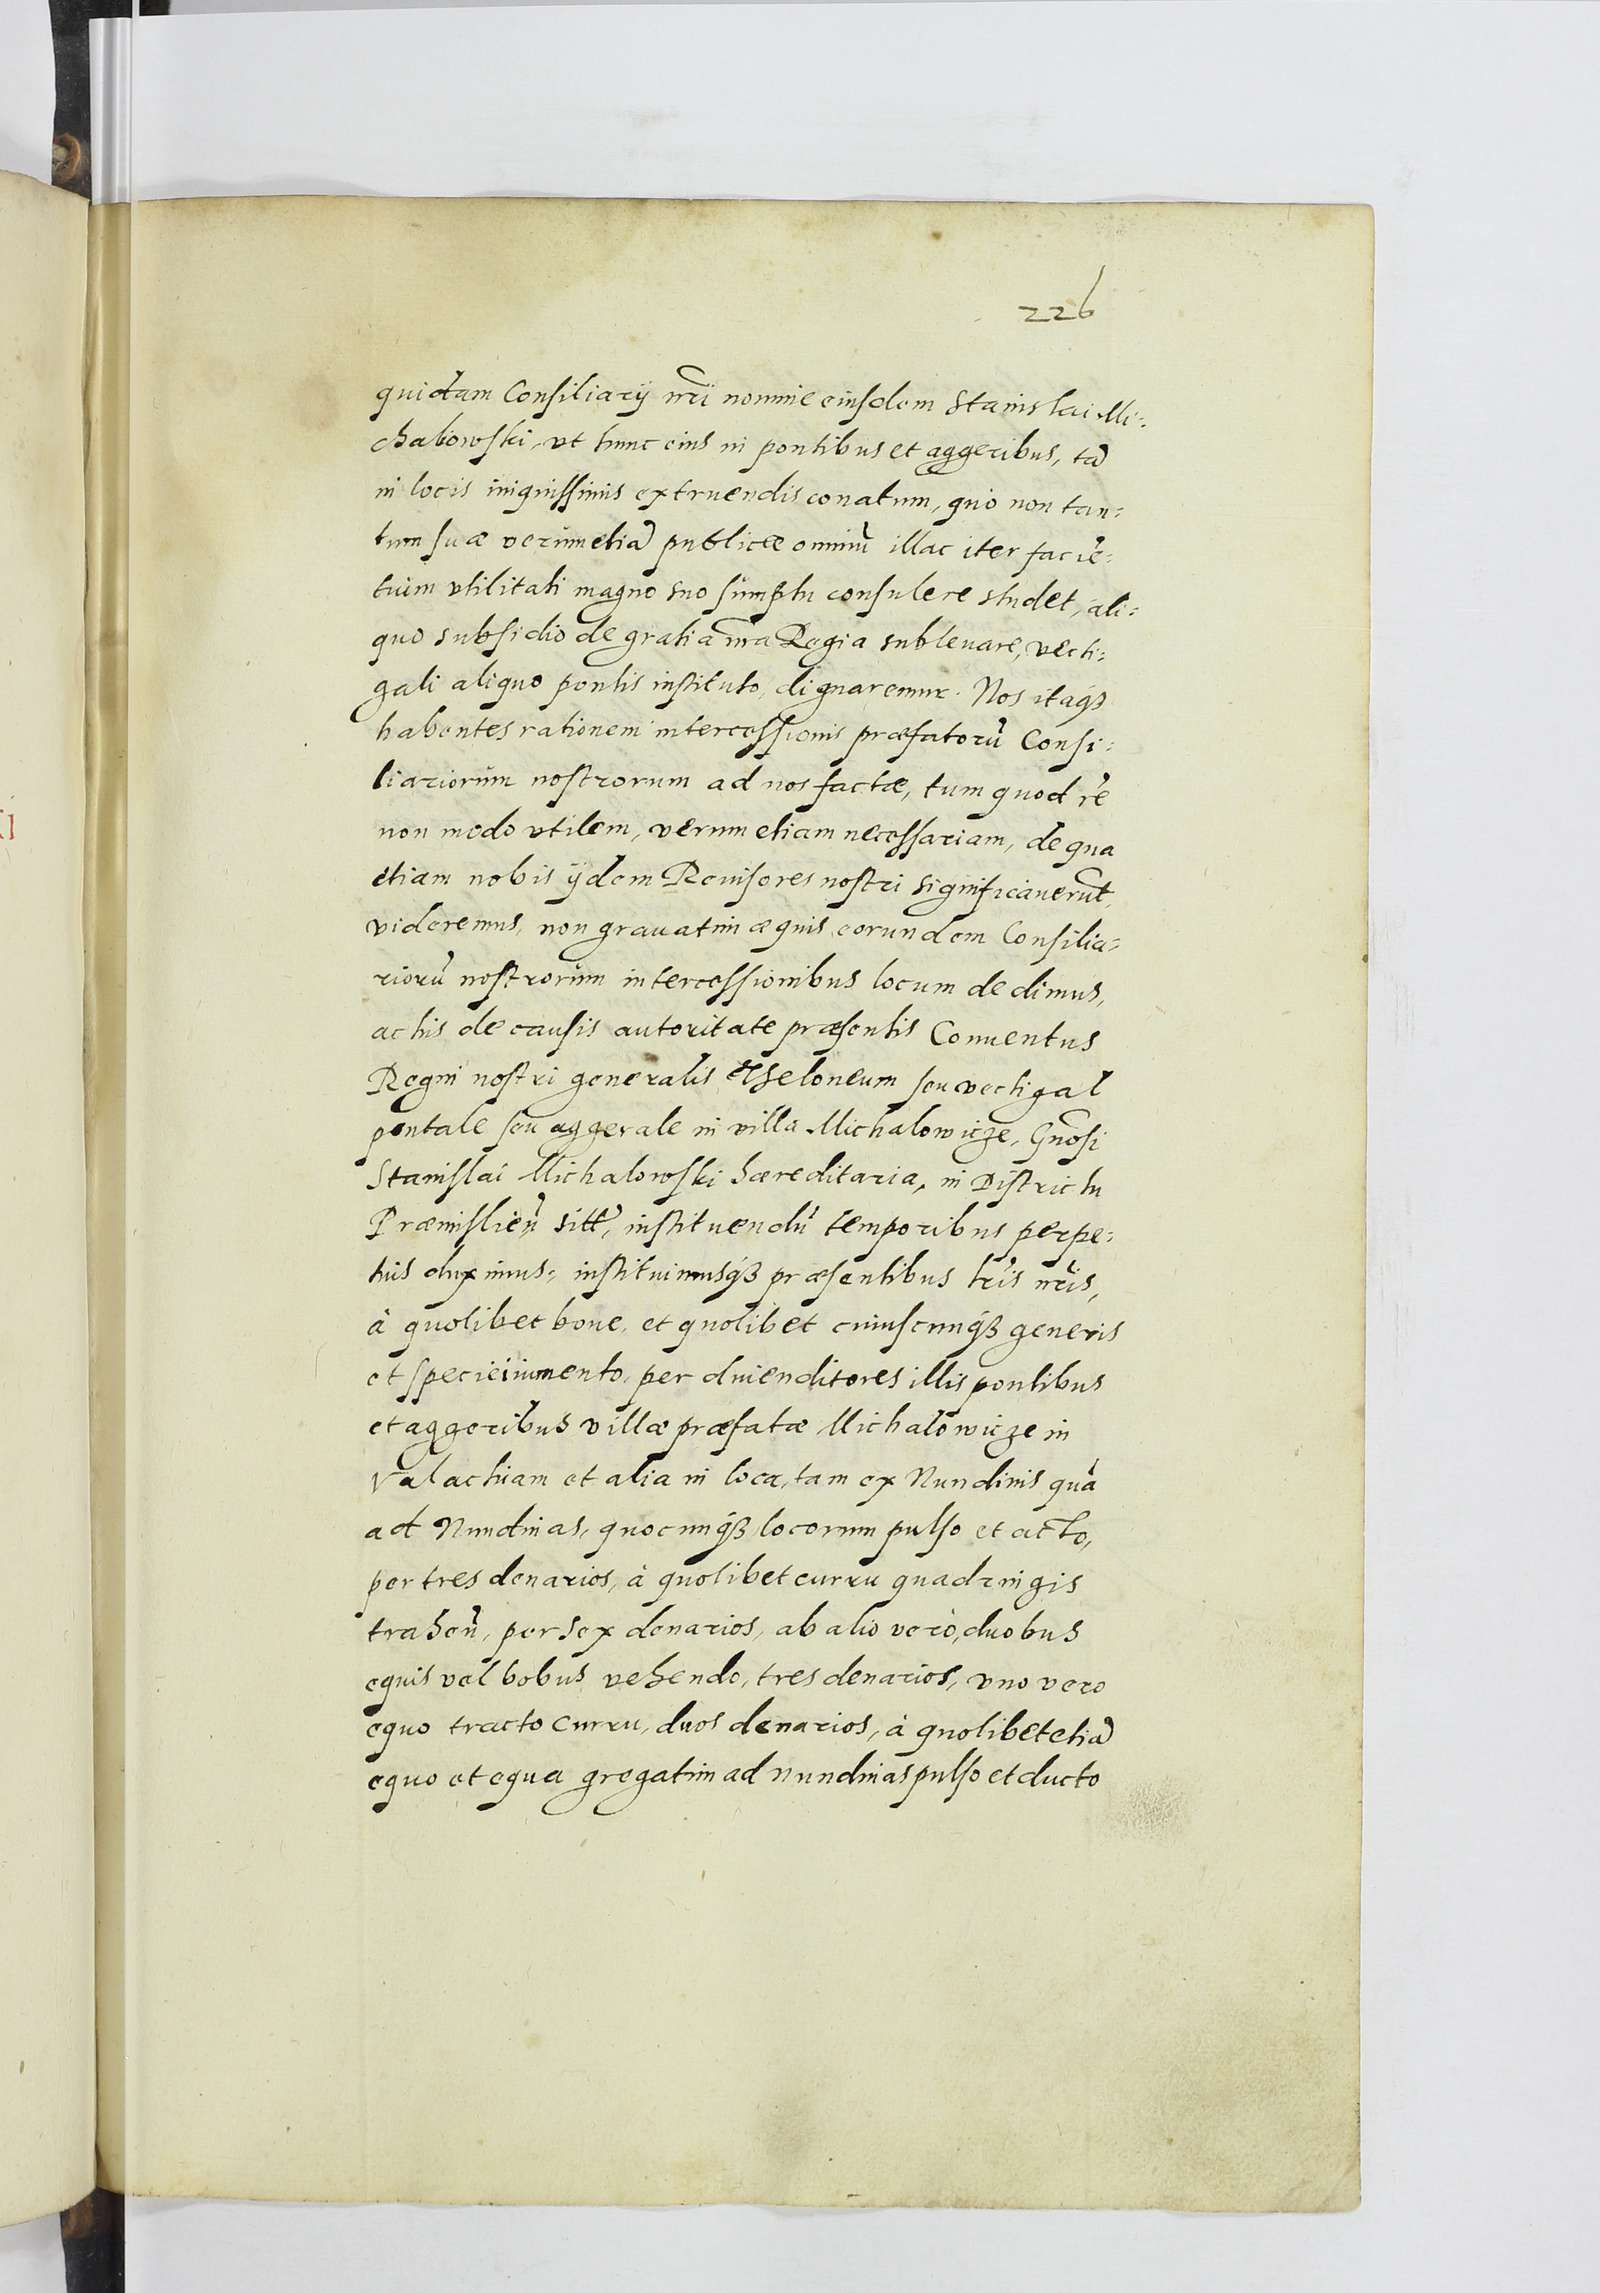 226
quidam Consiliarij nr̃i nomine eiusdem Stanislai Mi:
chalowski, vt hunc eius in pontibus et aggeribus, tã
in locis iniquissimis extruendis conatum, quo non tan:
tum suæ verùm etiã publicæ omniũ illac iter faciẽ:
tium vtilitati magno suo sumptu consulere studet, ali:
quo subsidio de gratia nr̃a Regia subleuare, vecti:
gali aliquo pontis instituto, dignaremur. Nos itaq3
habentes rationem intercessionis præfatorũ Consi:
liariorum nostrorum ad nos factæ, tum quod rẽ
non modo vtilem, verum etiam necessariam, de qua
etiam nobis ijdem Reuisores nostri significauerũt,
videremus, non grauatim æquis eorundem Consilia:
riorũ nostrorum intercessionibus locum dedimus,
ac his de causis autoritate præsentis Conuentus
Regni nostri generalis Theloneum seu vectigal
pontale seu aggerale in villa Michalowicze, Gñosi
Stanislai Michalowski hæreditaria, in Districtu
Præmislieñ sitt̃, instituendũ temporibus perpe:
tuis duximus, instituimusq3 præsentibus lr̃is nr̃is,
à quolibet boue, et quolibet cuiuscunq3 generis
et speciei iumento, per diuenditores illis pontibus
et aggeribus villæ præfatæ Michalowicze in
Valachiam et alia in loca, tam ex Nundinis quã
ad Nundinas, quocunq3 locorum pulso et acto,
per tres denarios, à quolibet curru quadringis
traheñ, per sex denarios, ab alio verò, duobus
equis vel bobus vehendo, tres denarios, vno vero
equo tracto curru, duos denarios, à quolibet etiã
equo et equa gregatim ad nundinas pulso et ducto